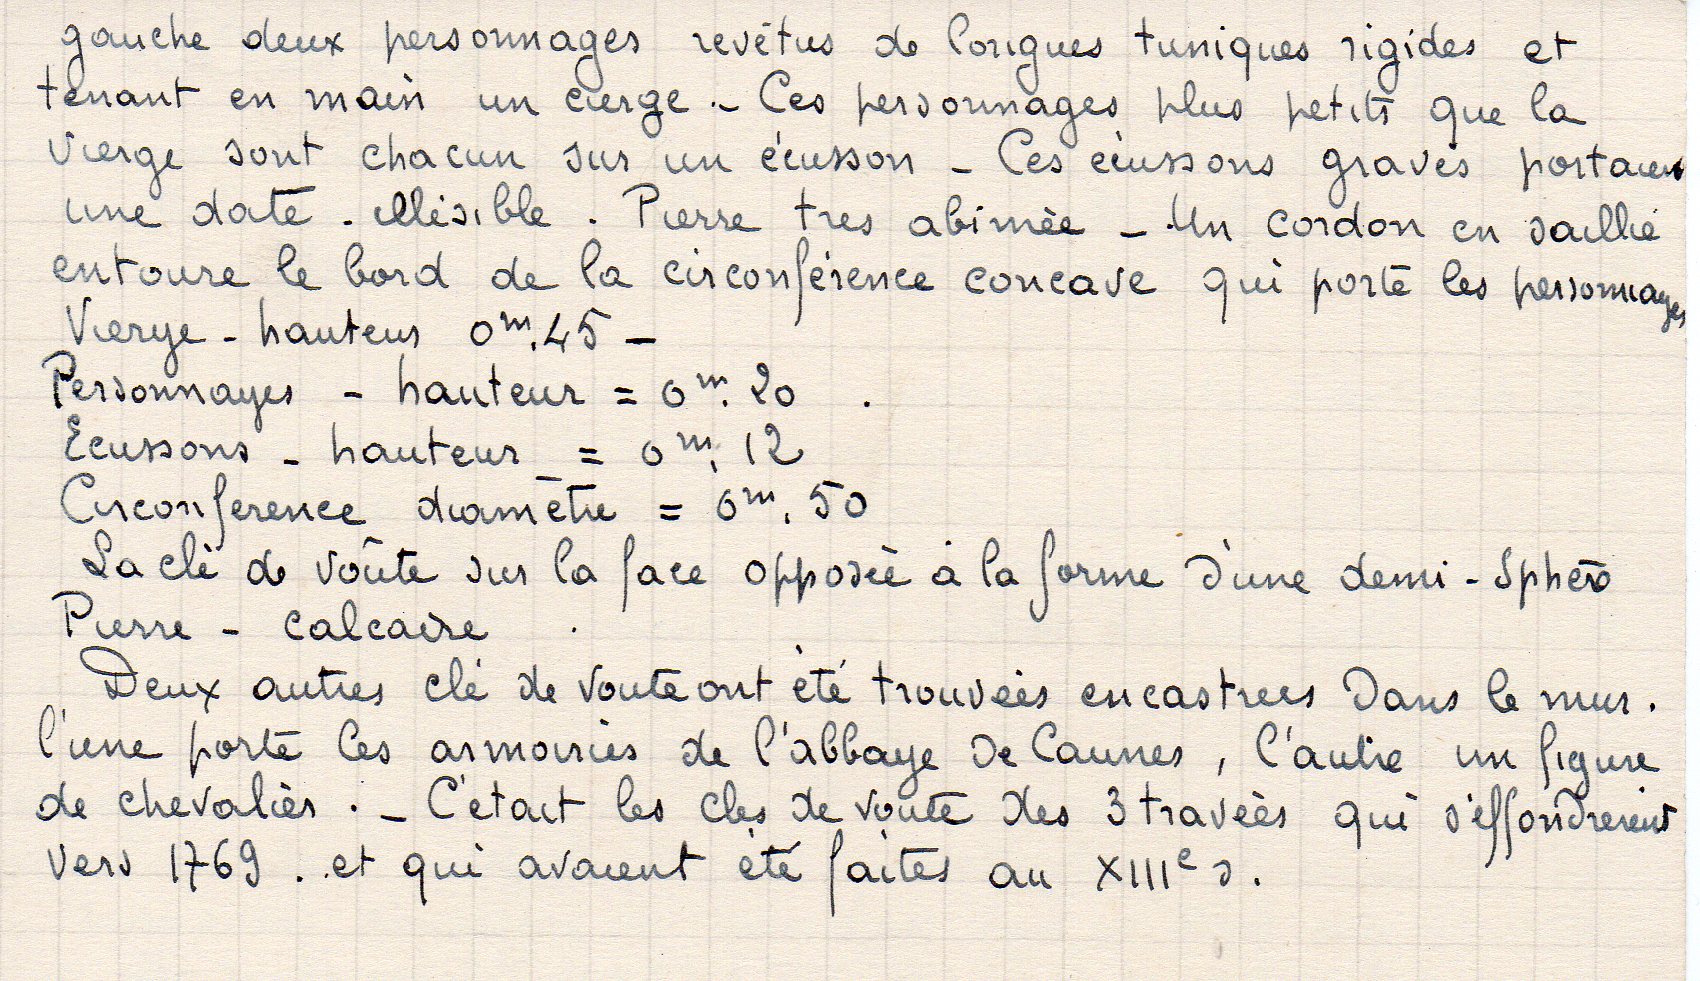 gauche deux personnages revêtus de longues tuniques rigides et
tenant en main un cierge - Ces personnages plus petits que la
vierge sont chacun sur un écusson - Ces écussons gravés portaient
une date - illisible. Pierre tres abimée - Un cordon en saillie
entoure le bord de la circonférence concave qui porte les personnages
Vierge - hauteur 0m.45 -
Personnages - hauteur = 0m.20 .
Ecussons - hauteur = 0m.12
Circonference diamètre = 0m.50
La clé de voûte sur la face opposée a la forme d'une demi-sphère
Pierre - calcaire .
Deux autres clé de voute ont été trouvées encastrees dans le mur.
l'une porte les armoiries de l'abbaye de Caunes, l'autre un figure
de chevalier. - C'était les clés de voute des 3 travées qui s'effondrèrent
vers 1769 . et qui avaient été faites au XIIIe s.